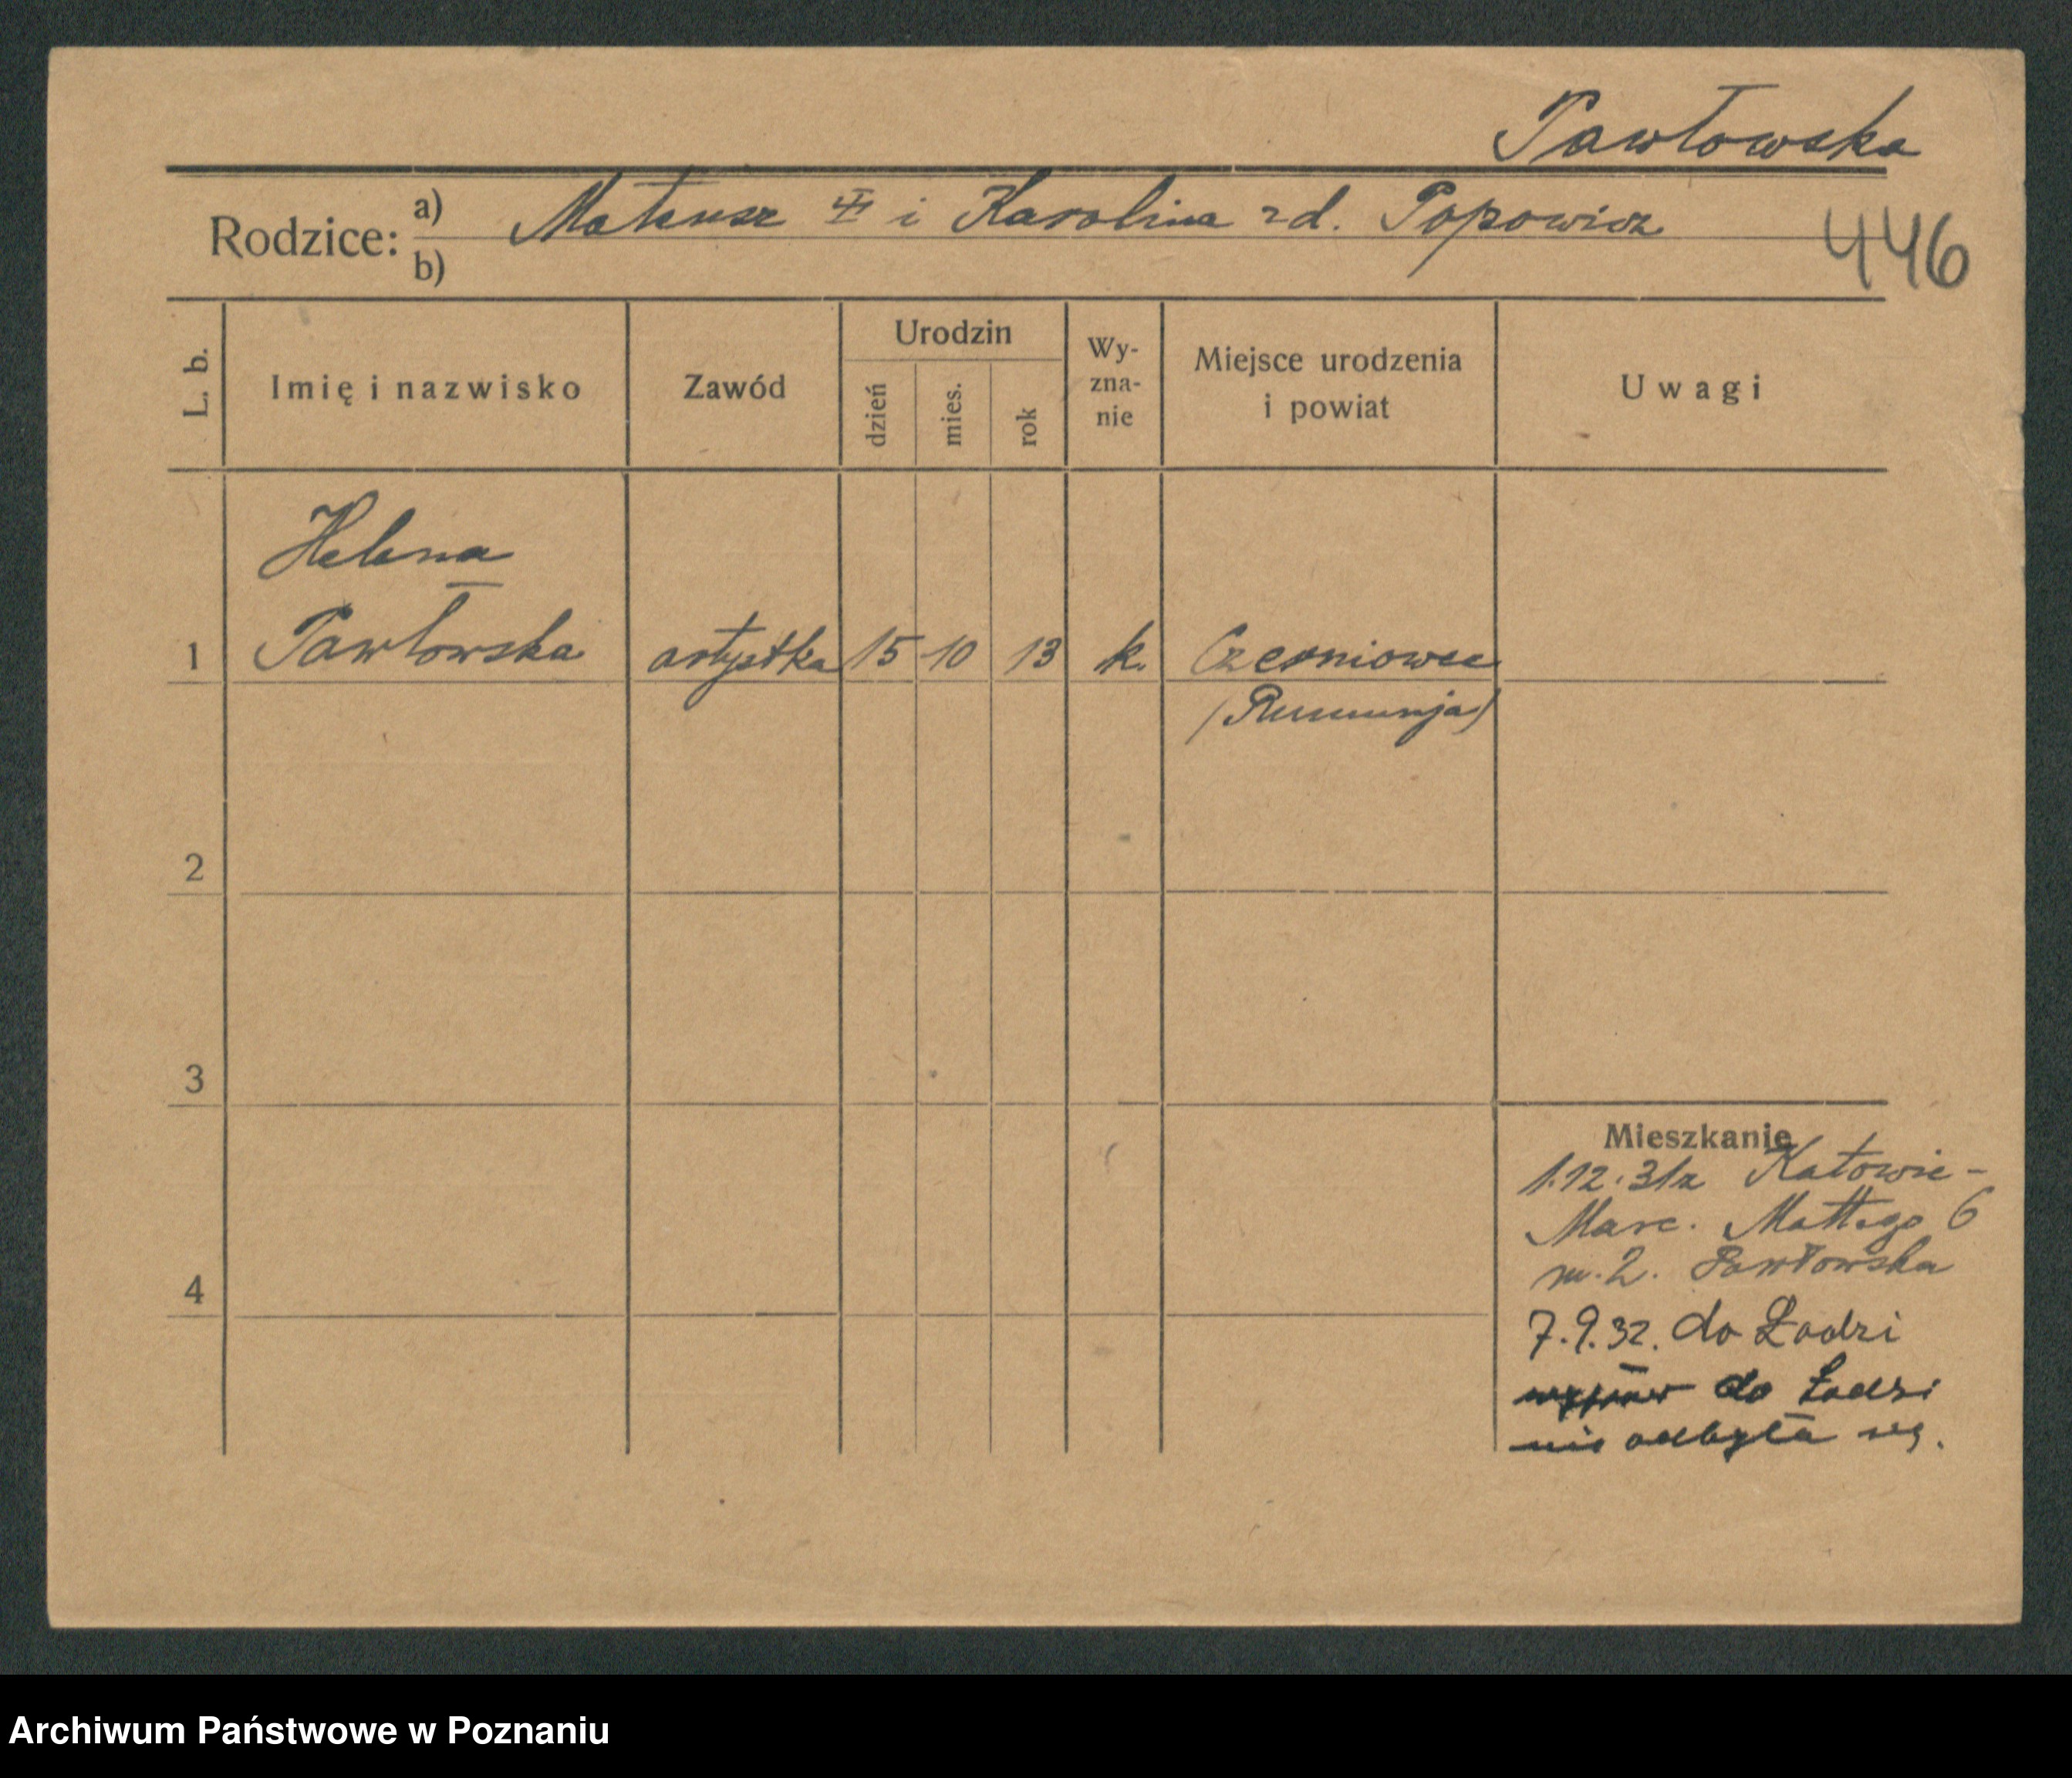 Pawłowska
Rodzice: a) Mateusz i Karolina zd. Popowicz
b)
446
L. b.
Imię i nazwisko
Zawód
Urodzin
dzień
mies.
rok
Wy-
zna-
nie
Miejsce urodzenia
i powiat
Uwagi
Helena
1 Pawłowska artystka 15 10 13 k. Czerniowce
(Rumunja)
2
3
4
Mieszkanie
1.12.31 z Katowic -
Marc. Mottego 6
m. 2. Pawłowska
7.9.32. do Łodzi
do Łodzi
nie odbyła się.
Archiwum Państwowe w Poznaniu